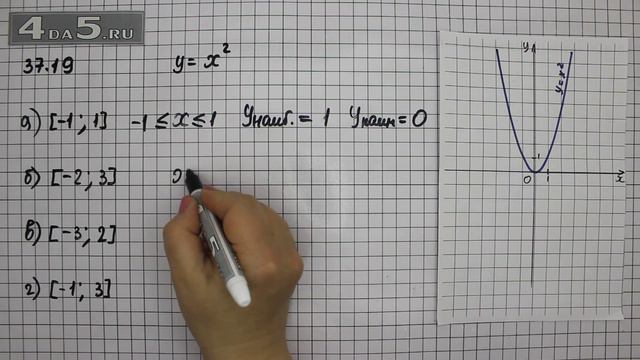 4DA5.RU
37.19 y = x²
а) [-1; 1] -1 ≤ x ≤ 1 Yнаиб. = 1 Yнаим = 0
б) [-2; 3]
в) [-3; 2]
г) [-1; 3]
y
y=x²
1
0 1 x